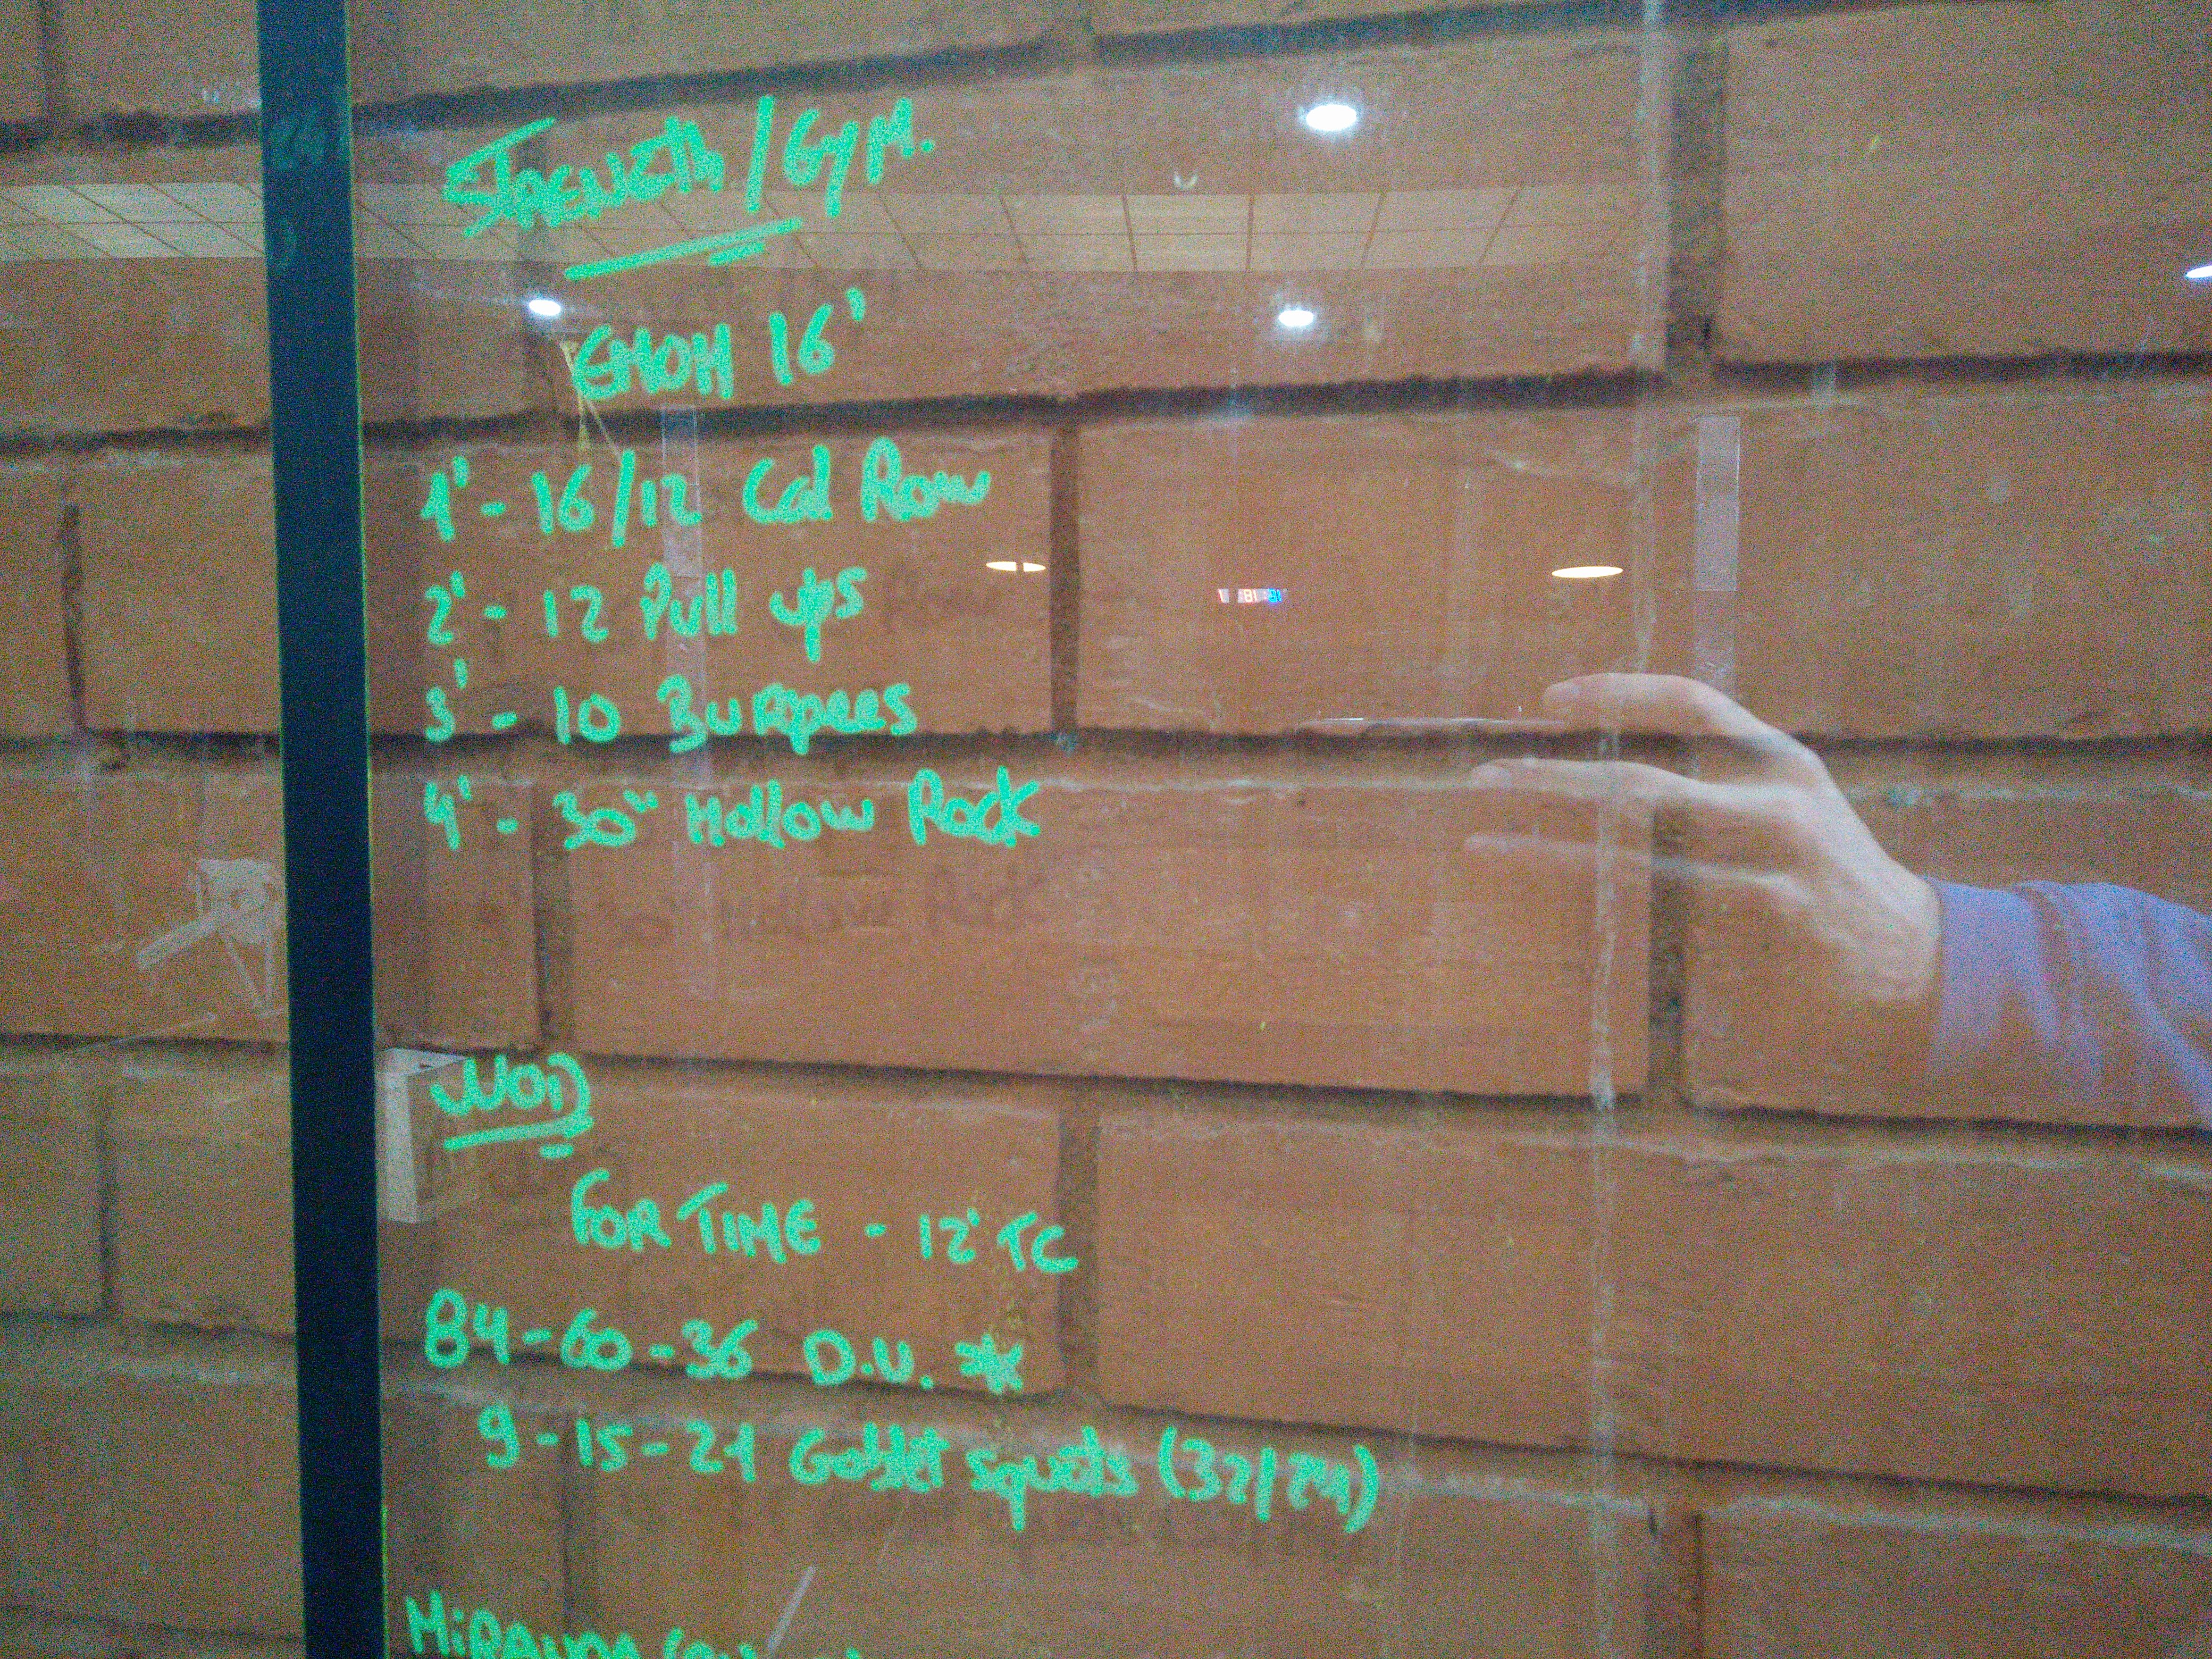 STRENGTH / GYM.
EMOM 16'
1' - 16/12 Cal Row
2' - 12 Pull ups
3' - 10 Burpees
4' - 30" Hollow Rock
WOD
FOR TIME - 12' TC
84-60-36 D.U. *
9-15-21 Goblet squats (32/24)